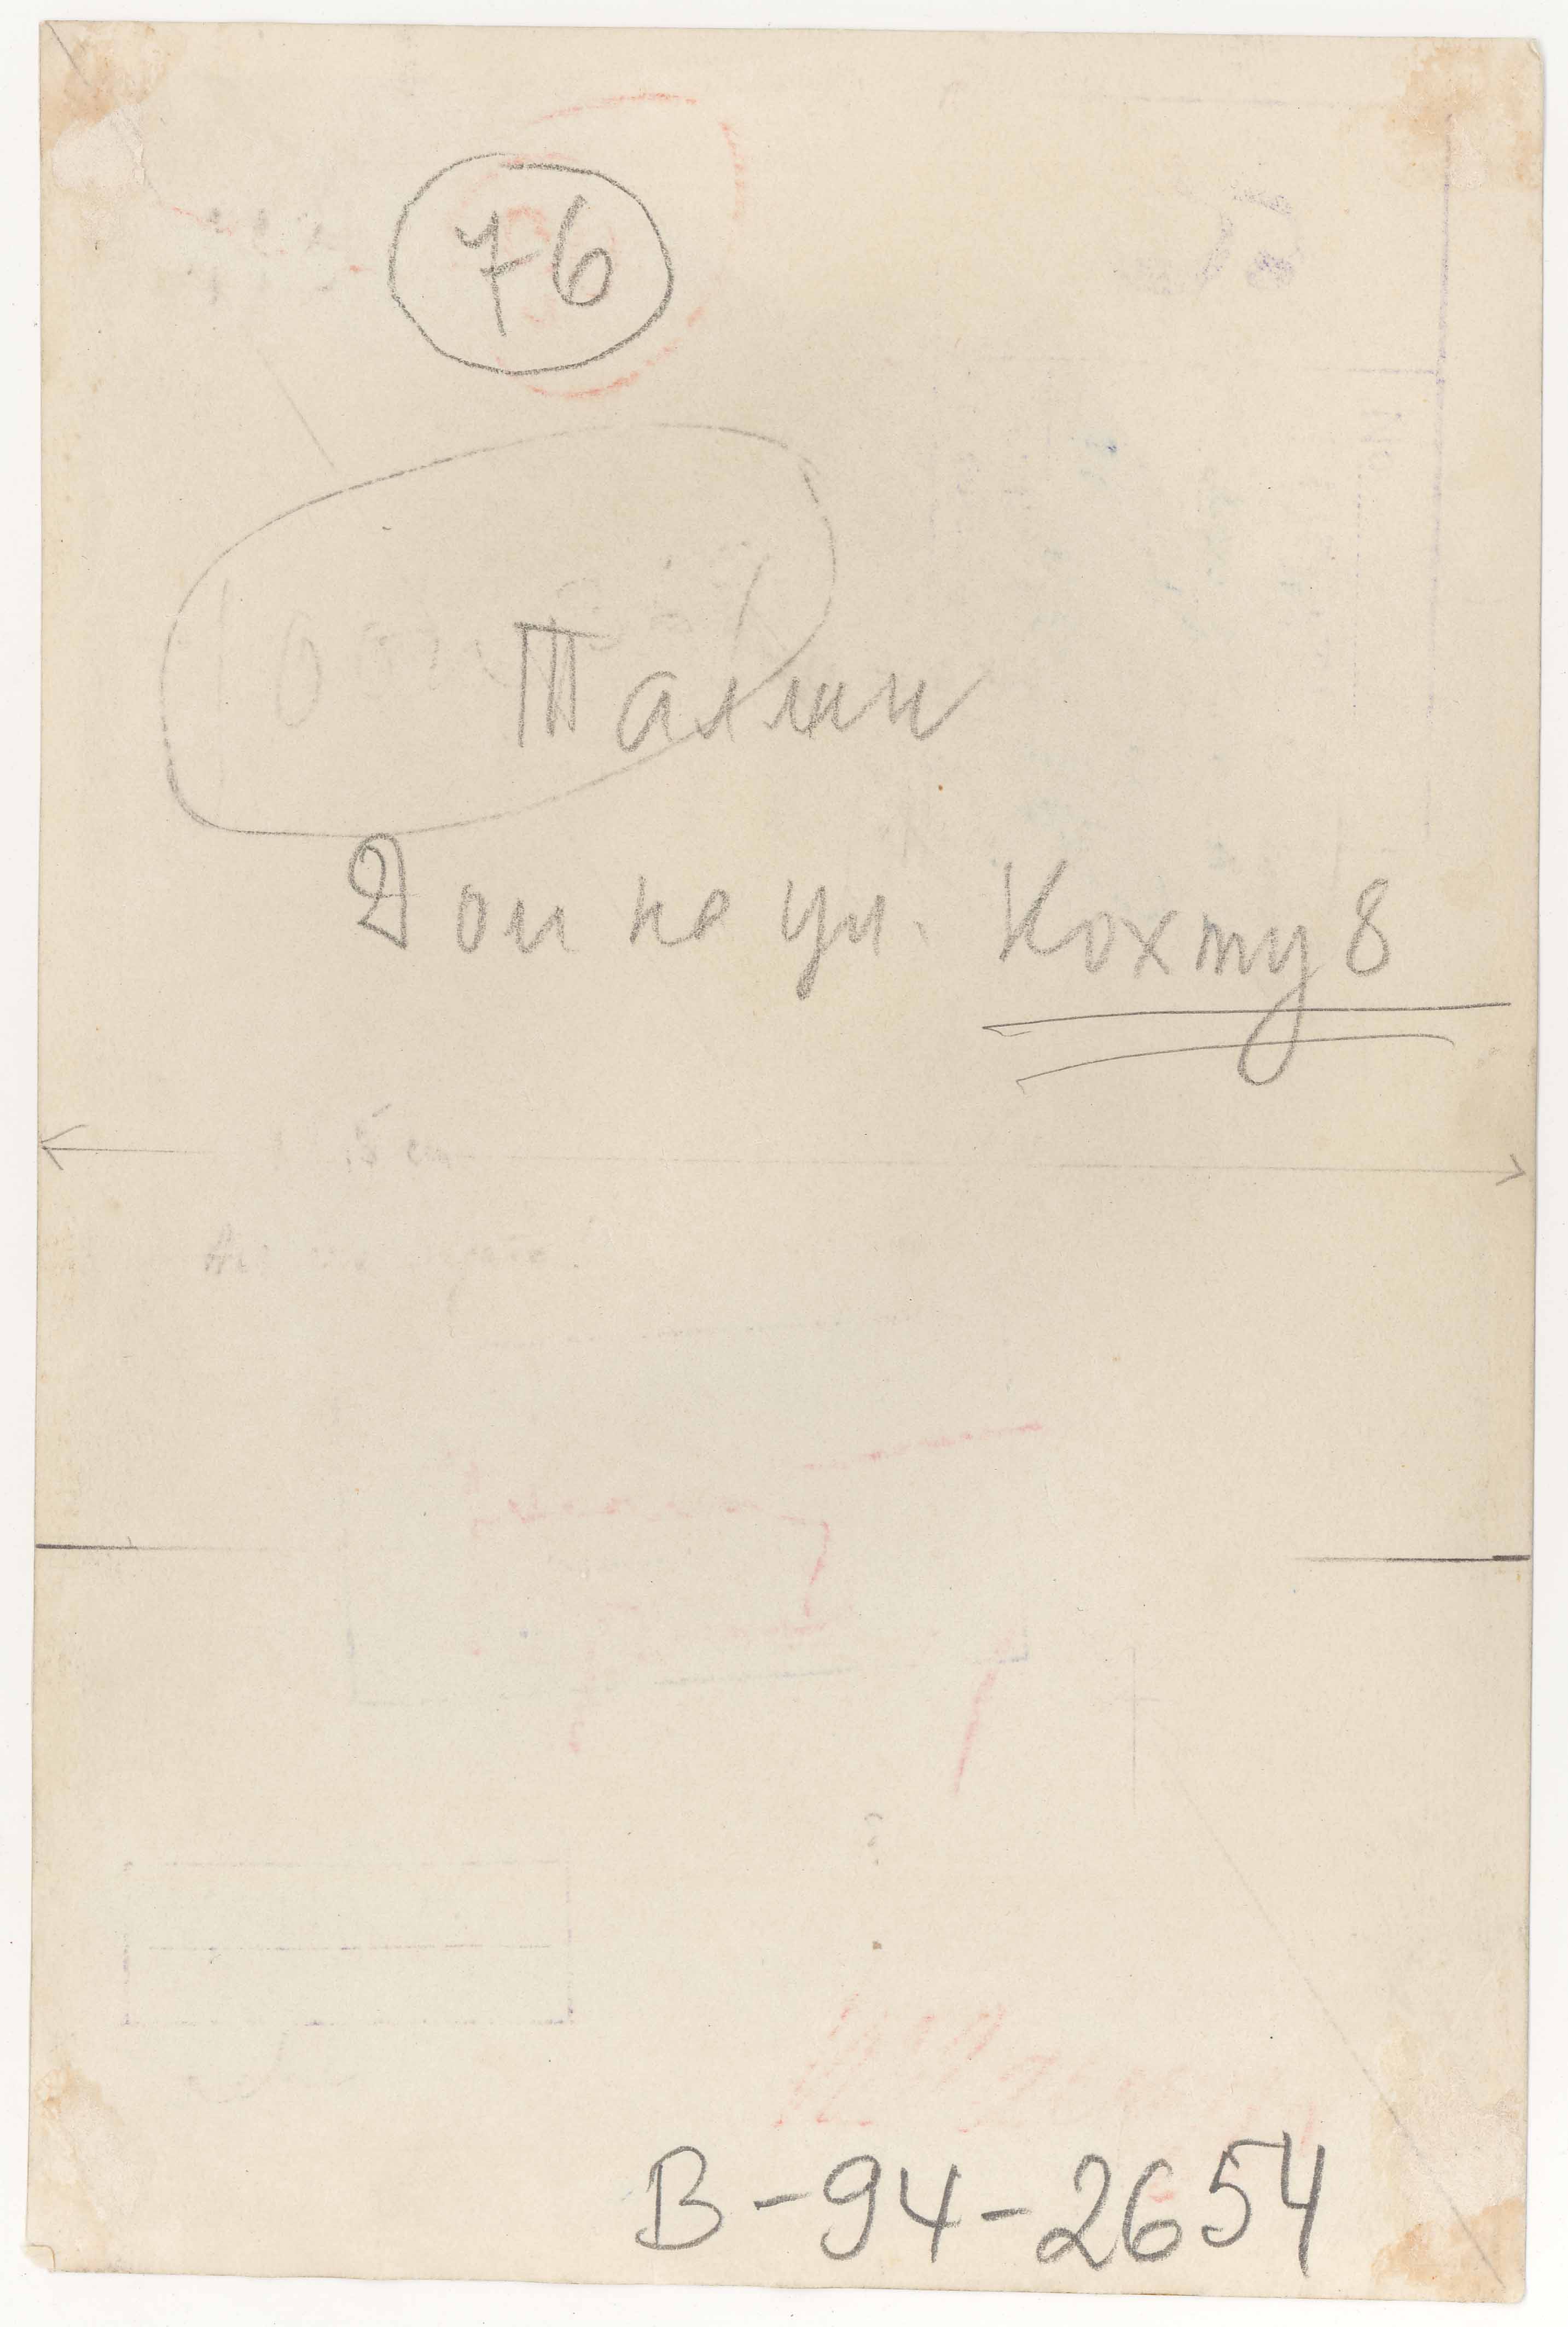 76
Таллин
Дом на ул. Кохту 8
B-94-2654